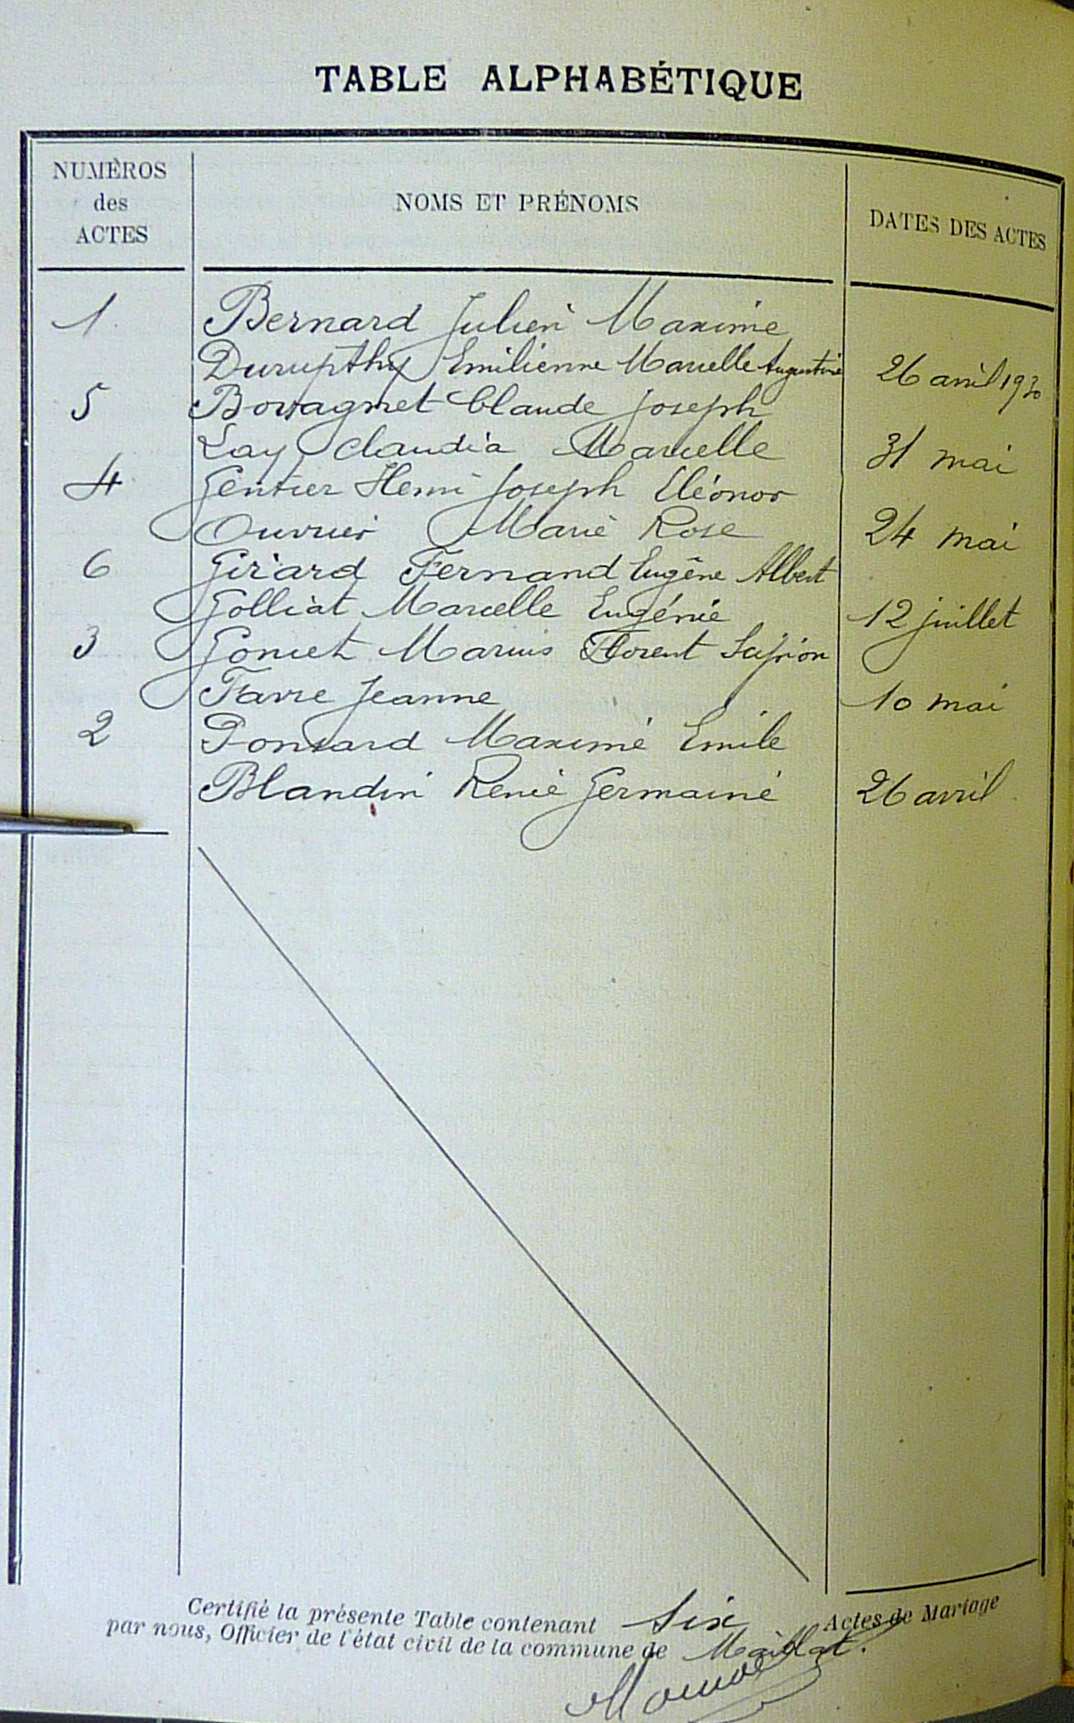 TABLE ALPHABÉTIQUE
NUMÈROS
des
ACTES
NOMS ET PRÉNOMS
DATES DES ACTES
1 Bernard Julien Maxime
Durupthy Emilienne Marcelle Augustine 26 avril 1930
5 Claude Joseph
Lay Claudia Marcelle 31 mai
4 Gentier Henri Joseph Eléonor
Ouvrier Marie Rose 24 mai
6 Girard Fernand Eugène Albert
Golliat Marcelle Eugénie 12 juillet
3 Goncet Marius Florent
Favre Jeanne 10 mai
2 Ponsard Maxime Emile
Blandin Renée Germaine 26 avril
Certifié la présente Table contenant six Actes de Mariage
par nous, Officier de l'état civil de la commune de Maillat.